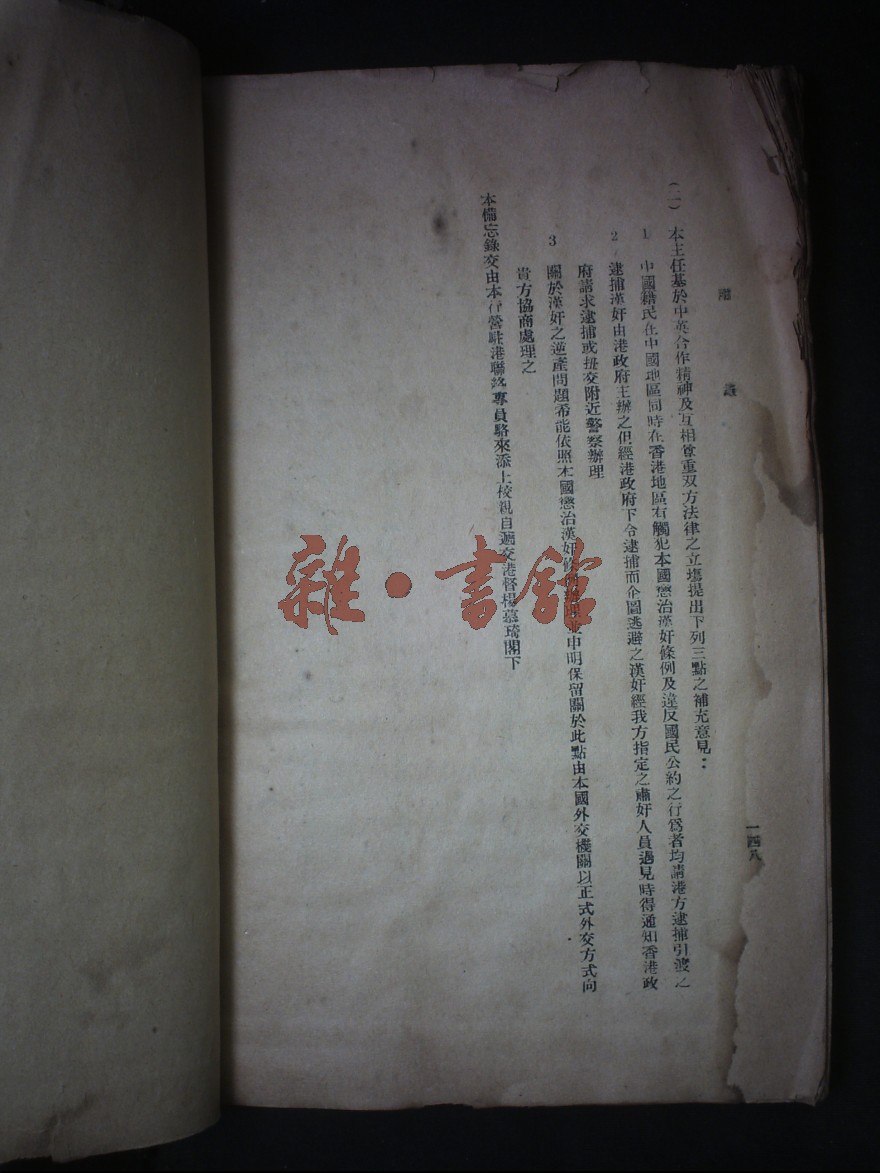 附
錄
一四八
(二) 本主任基於中英合作精神及互相尊重双方法律之立塲提出下列三點之補充意見：
1 中國籍民在中國地區同時在香港地區有觸犯本國懲治漢奸條例及違反國民公約之行爲者均請港方逮捕引渡之
2 逮捕漢奸由港政府主辦之但經港政府下令逮捕而企圖逃避之漢奸經我方指定之肅奸人員遇見時得通知香港政
府請求逮捕或扭交附近警察辦理
3 關於漢奸之逆產問題希能依照本國懲治漢奸條例辦理並申明保留關於此點由本國外交機關以正式外交方式向
貴方協商處理之
本備忘錄交由本行營駐港聯絡專員駱來添上校親自遞交港督楊慕琦閣下
雜·書館